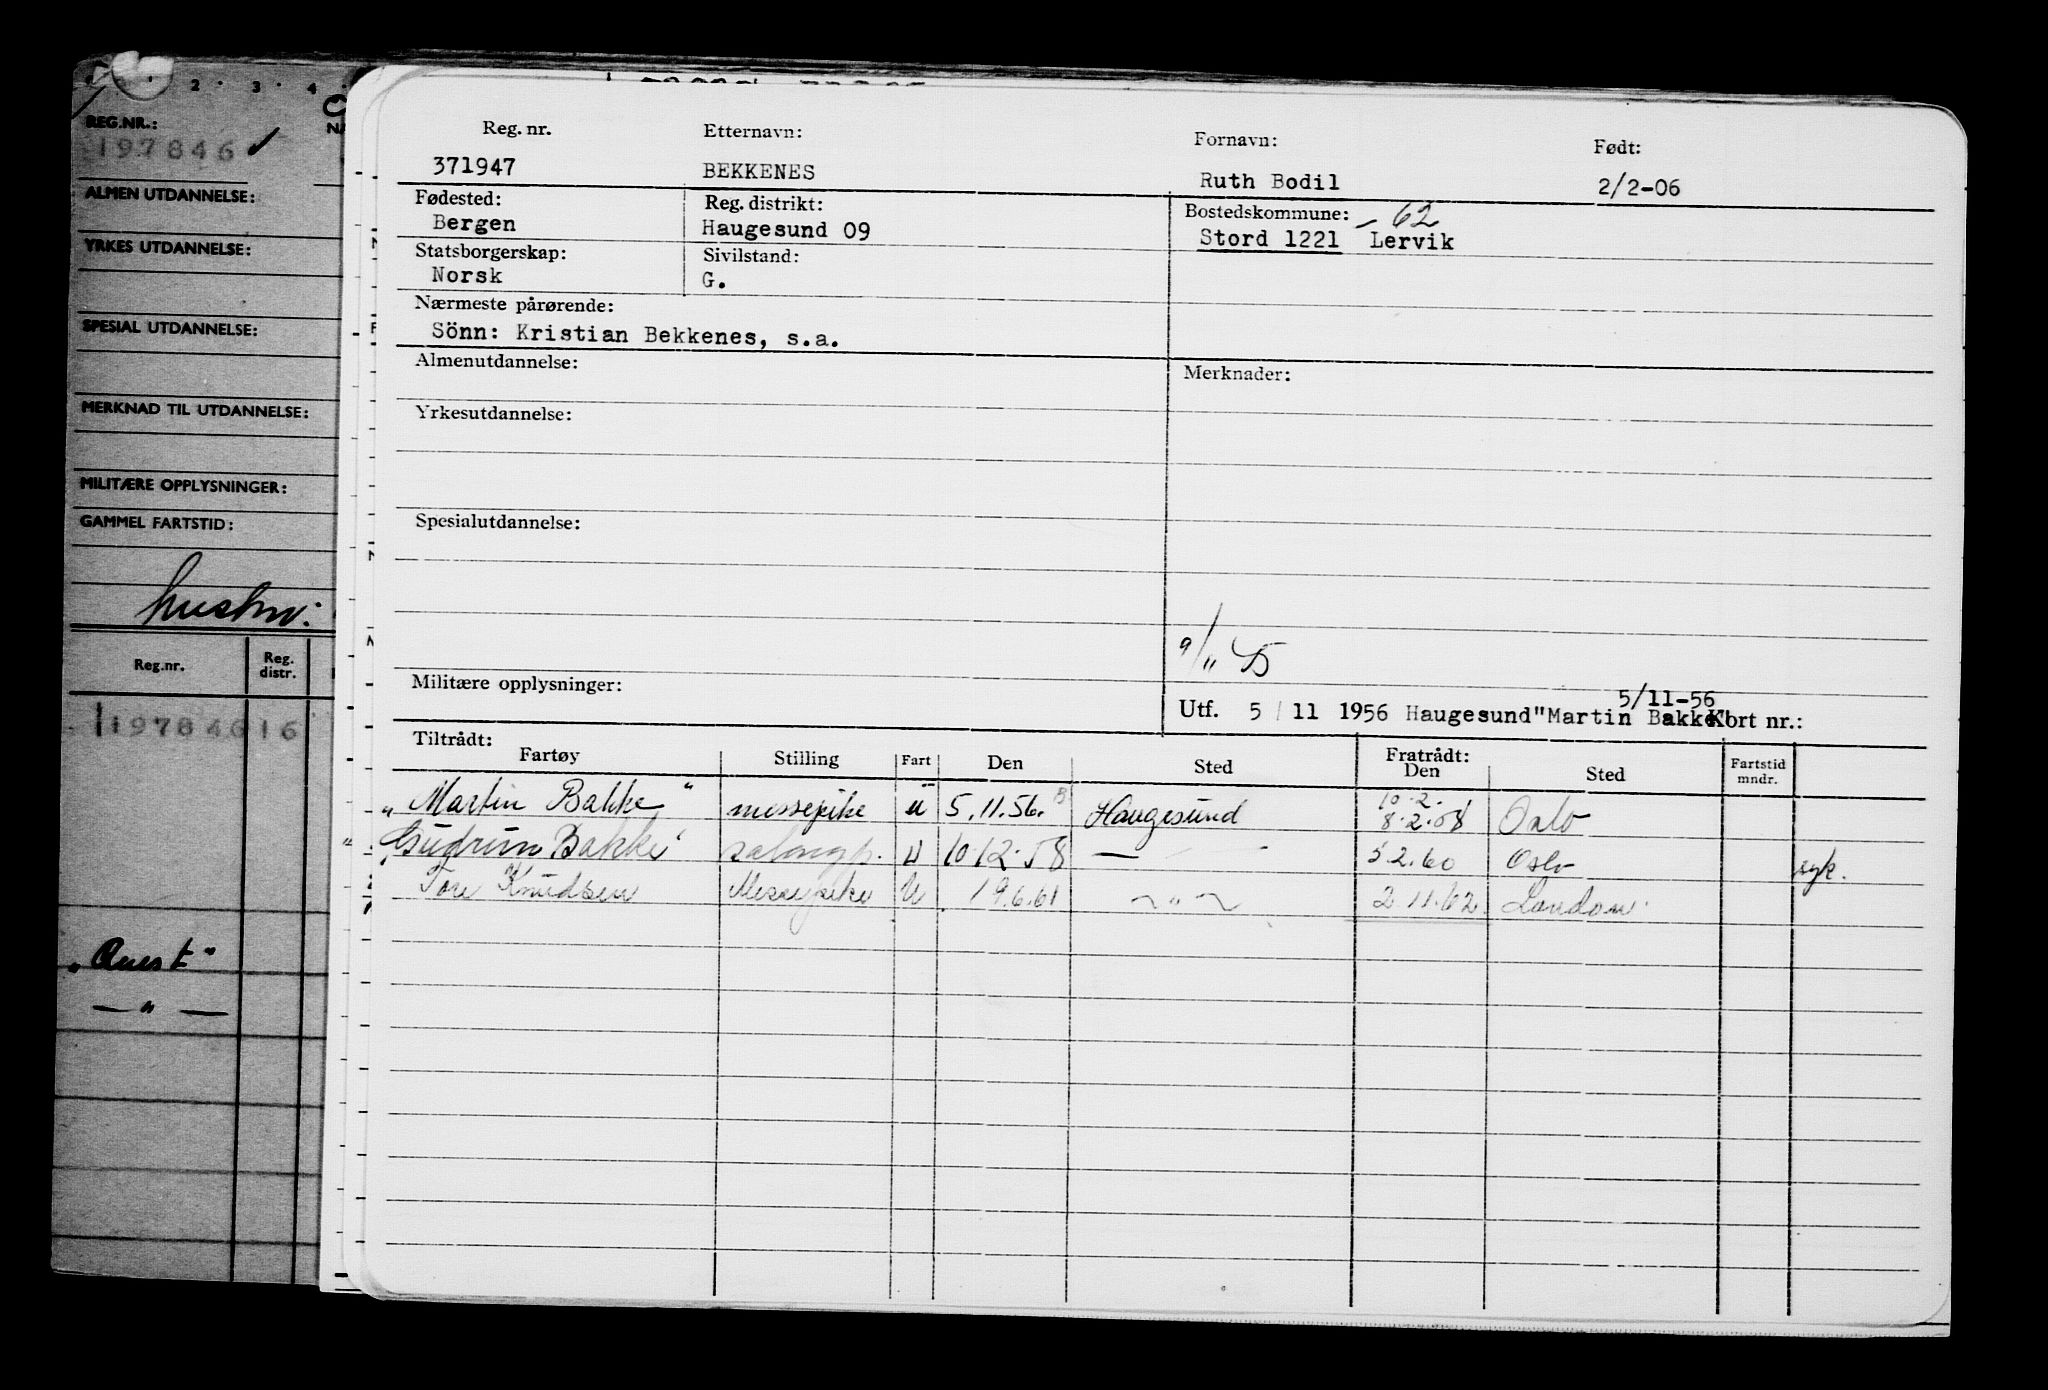 1 · 2 · 3 · 4 ·
REG.NR.:
197846
ALMEN UTDANNELSE:
YRKES UTDANNELSE:
SPESIAL UTDANNELSE:
MERKNAD TIL UTDANNELSE:
MILITÆRE OPPLYSNINGER:
GAMMEL FARTSTID:
Reg.nr. Reg. distr.
197846 16
— " —
Reg. nr. Etternavn: Fornavn: Født:
371947 BEKKENES Ruth Bodil 2/2-06
Fødested: Reg. distrikt: Bostedskommune: - 62
Bergen Haugesund 09 Stord 1221 Lervik
Statsborgerskap: Sivilstand:
Norsk G.
Nærmeste pårørende:
Sönn: Kristian Bekkenes, s.a.
Almenutdannelse: Merknader:
Yrkesutdannelse:
Spesialutdannelse:
9/11
Militære opplysninger:
5/11-56
Utf. 5/11 1956 Haugesund "Martin Bakke" Kort nr.:
Tiltrådt: Fratrådt:
Fartøy Stilling Fart Den Sted Den Sted Fartstid mndr.
10.2.
"Martin Bakke" messepike u 5.11.56. Haugesund 8.2.58 Oslo
"Gudrun Bakke" salongp. u 10.12.58 — " — 5.2.60 Oslo syk.
Tore Knudsen Messepike U 19.6.61 — " — 2.11.62 London